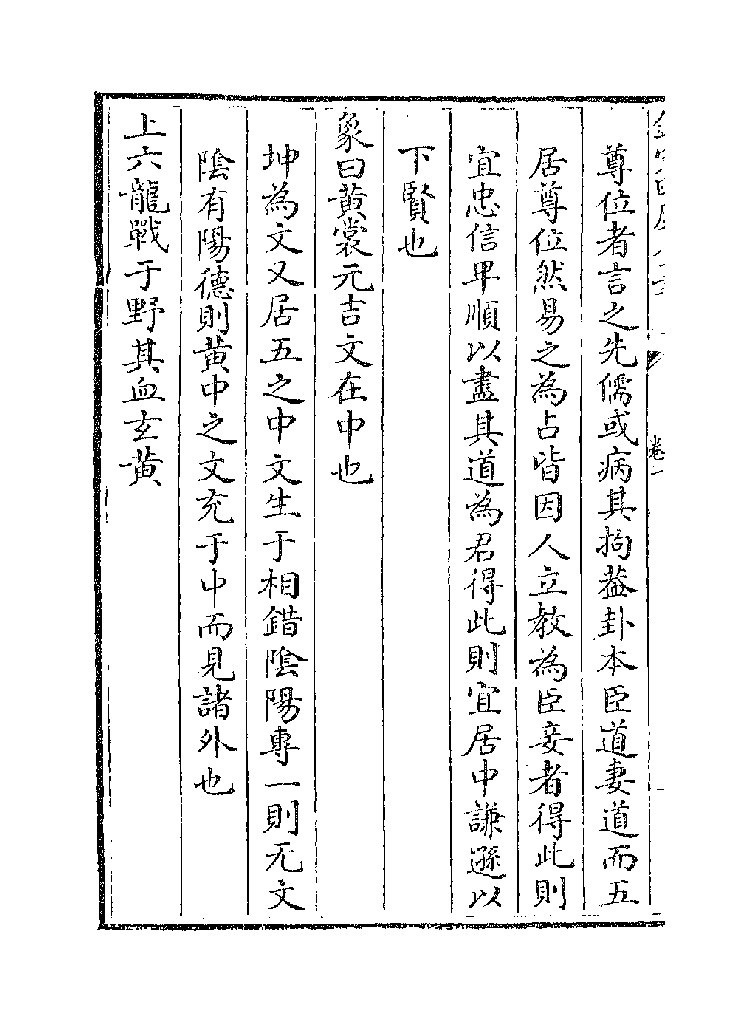 尊位者言之先儒或病其拘葢卦本臣道妻道而五
居尊位然易之為占皆因人立教為臣妾者得此則
宜忠信卑順以盡其道為君得此則宜居中謙遜以
下賢也
象曰黄裳元吉文在中也
坤為文又居五之中文生于相錯隂陽專一則无文
隂有陽德則黄中之文充于中而見諸外也
上六龍戰于野其血玄黄